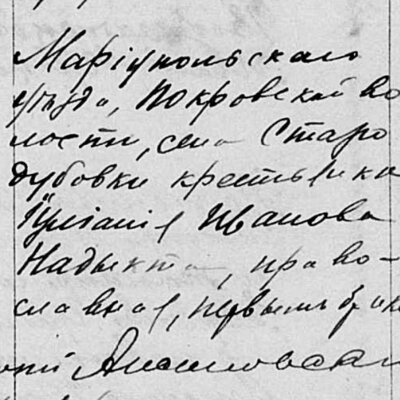 Маріупольскаго
уѣзда, Покровской во
лости, села Старо
дубовки крестьянка
Іуліанія Иванова
Надыкта, право-
славная, первымъ брак